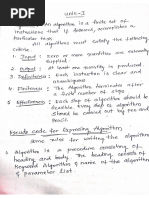 Unit-I
Algorithm: An Algorithm is a finite set of
instructions that if followed, accomplishes a
Particular task.
All algorithms must satisfy the following
criteria
1. Input : Zero or more quantities are externally
supplied.
2. Output : At least one quantity is produced.
3. Definiteness : Each instruction is clear and
4. Finiteness : The Algorithm terminates after
a finite number of steps.
5. Effectiveness : Each step of algorithm should be
feasible from step to step. Every step
should be carried out by pen and
Pencil.
Pseudo code for Expressing Algorithms
some rules for writing the Algorithm
1. Algorithm is a procedure consisting of
heading and body. The heading consists of
Keyword Algorithm & name of the algorithm
& parameter list.